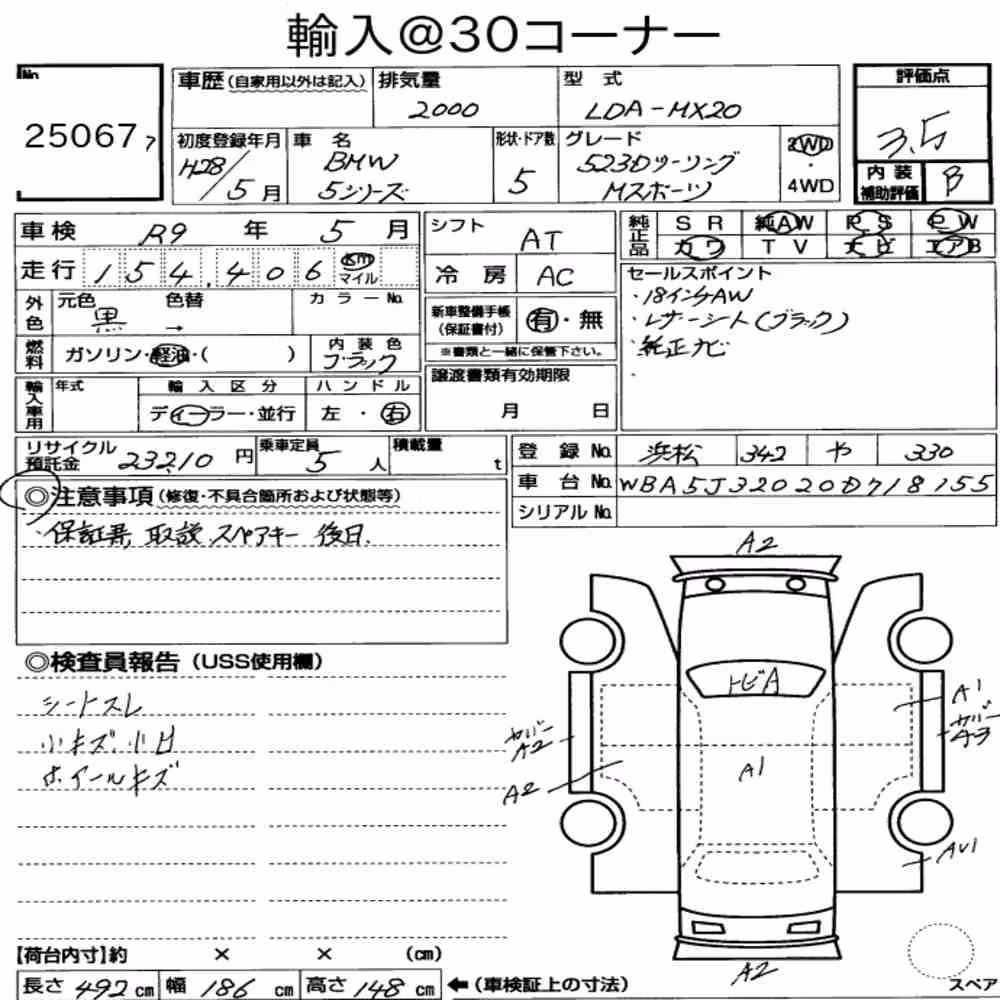 輸入@30コーナー
No.
25067 7
車歴(自家用以外は記入)
排気量
2000
型式
LDA-MX20
評価点
3.5
初度登録年月
H28/5月
車名
BMW
5シリーズ
形状・ドア数
5
グレード
523Dツーリング
Mスポーツ
2WD
・
4WD
内装
補助評価
B
車検 R9 年 5 月
走行 154,406 km
マイル
シフト
AT
冷房 AC
純正品
SR 純AW PS PW
カワ TV ナビ エアB
外色
元色 黒
色替 →
カラーNo.
新車整備手帳
(保証書付)
有・無
※書類と一緒に保管下さい。
セールスポイント
・18インチAW
・レザーシート(ブラック)
・純正ナビ
・
燃料
ガソリン・軽油・( )
内装色
ブラック
輸入車用
年式
輸入区分
ディーラー・並行
ハンドル
左・右
譲渡書類有効期限
月 日
リサイクル
預託金 23210 円
乗車定員
5人
積載量
t
登録No. 浜松 342 や 330
車台No. WBA5J32020D718155
シリアルNo.
◎注意事項(修復・不具合箇所および状態等)
・保証書, 取説, スペアキー 後日.
◎検査員報告(USS使用欄)
シートスレ
小キズ、小凹
ホイールキズ
A2
トビA
A1
カバー
A2
A2
A1
カバー
A3
AU1
A2
【荷台内寸】約 × × (cm)
長さ 492 cm 幅 186 cm 高さ 148 cm ←(車検証上の寸法)
スペア